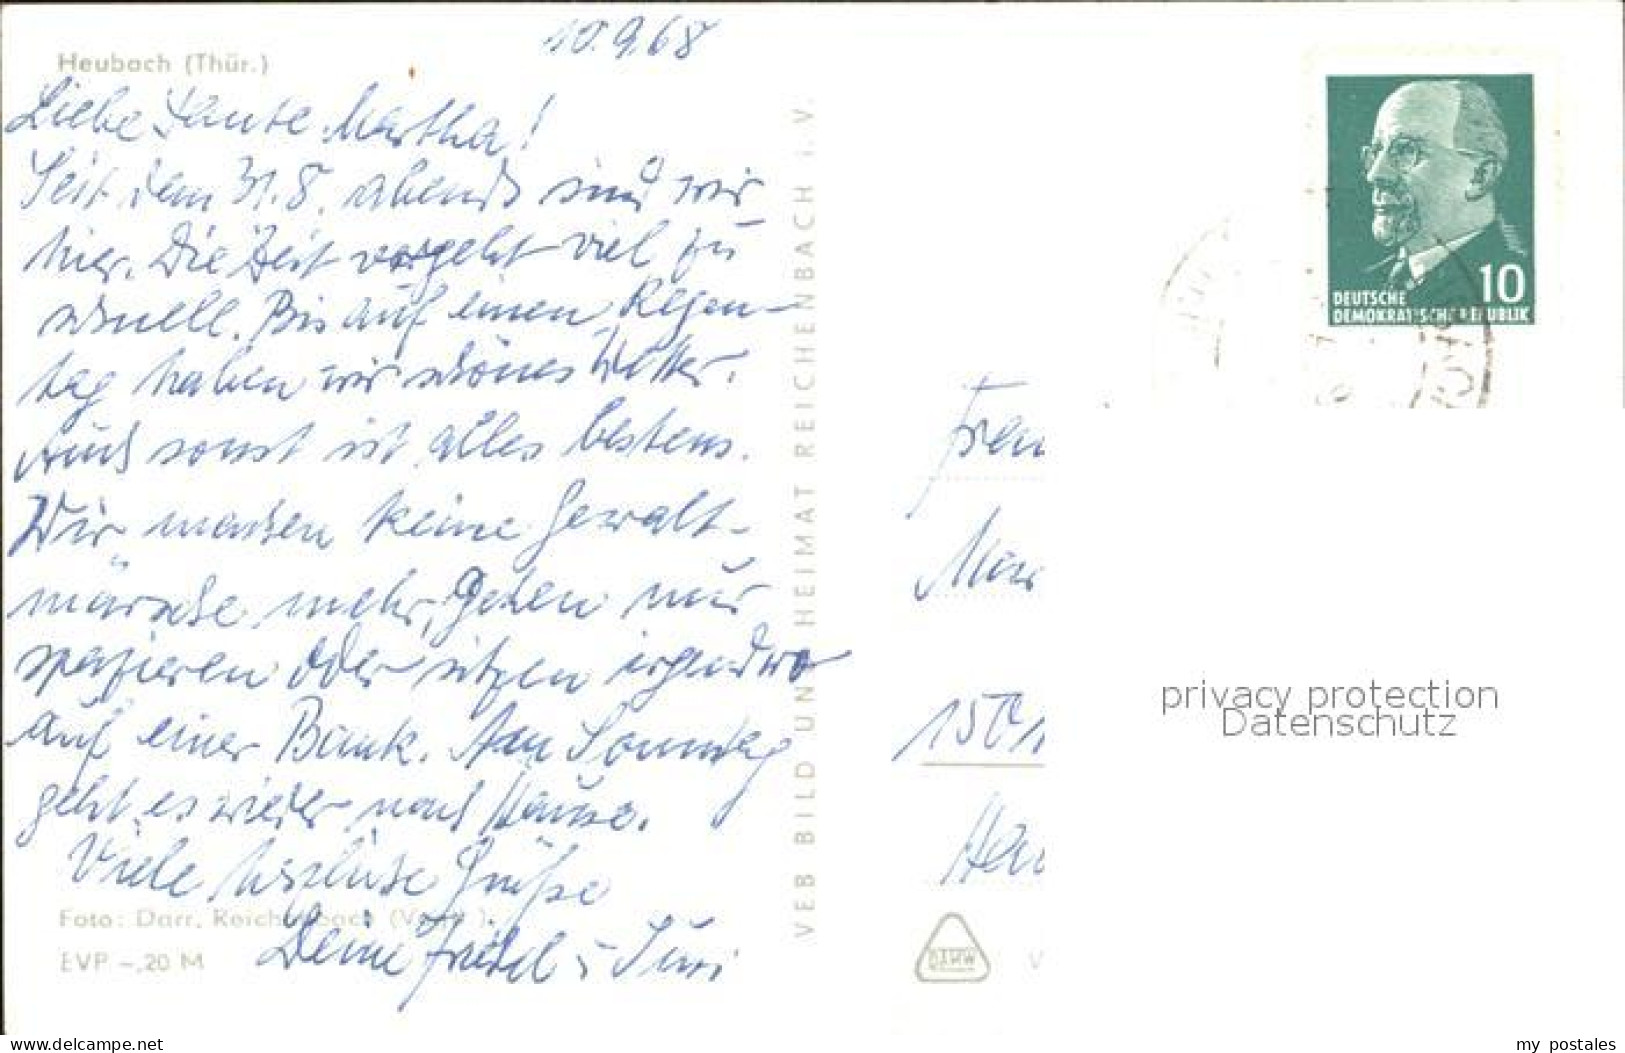 10.9.68
Heubach (Thür.)
Liebe Tante Martha!
Seit dem 31.8. abends sind wir
hier. Die Zeit vergeht viel zu
schnell. Bis auf einen Regen-
tag haben wir schönes Wetter.
Auch sonst ist alles bestens.
Wir machen keine Gewalt-
märsche mehr, gehen nur
spazieren oder sitzen irgendwo
auf einer Bank. Am Sonntag
geht es wieder nach Hause.
Viele herzliche Grüße
Deine Friedel
Foto: Darr, Reichenbach (Vogtl.)
EVP -,20 M
VEB BILD UND HEIMAT REICHENBACH I. V.
10
DEUTSCHE
DEMOKRATISCHE REPUBLIK
privacy protection
Datenschutz
V
www.delcampe.net
my_postales